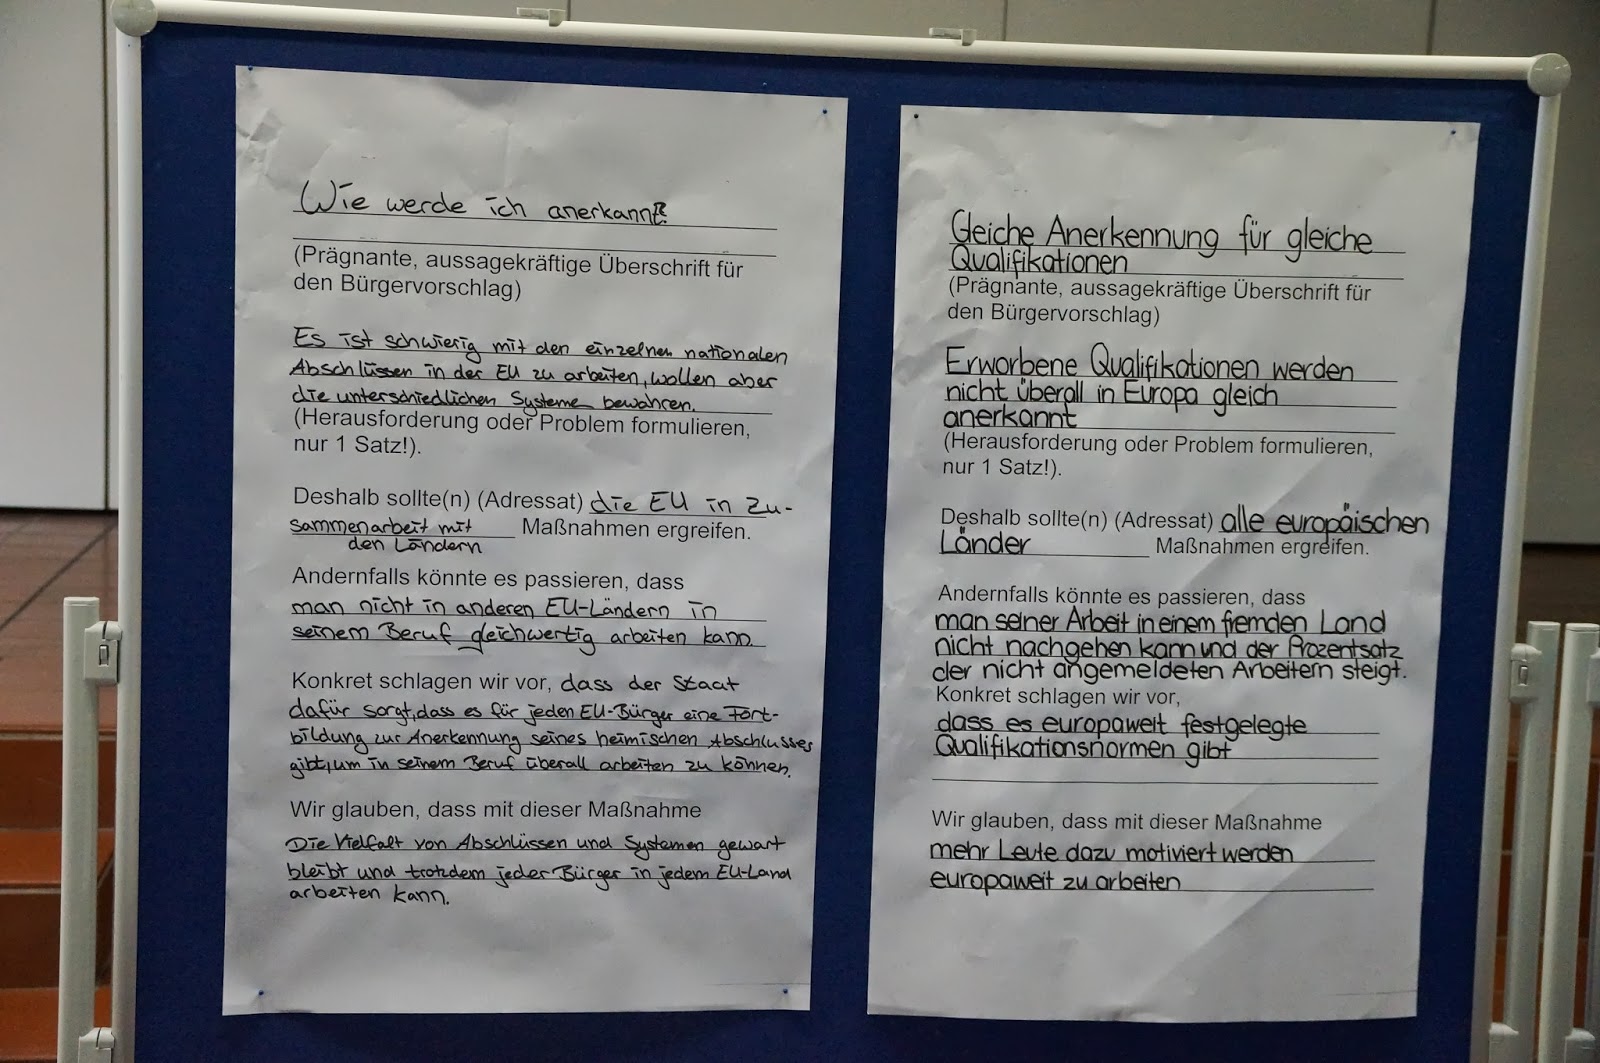 Wie werde ich anerkannt?
(Prägnante, aussagekräftige Überschrift für
den Bürgervorschlag)
Es ist schwierig mit den einzelnen nationalen
Abschlüssen in der EU zu arbeiten, wollen aber
die unterschiedlichen Systeme bewahren.
(Herausforderung oder Problem formulieren,
nur 1 Satz!).
Deshalb sollte(n) (Adressat) die EU in Zu-
sammenarbeit mit Maßnahmen ergreifen.
den Ländern
Andernfalls könnte es passieren, dass
man nicht in anderen EU-Ländern in
seinem Beruf gleichwertig arbeiten kann.
Konkret schlagen wir vor, dass der Staat
dafür sorgt, dass es für jeden EU-Bürger eine Fort-
bildung zur Anerkennung seines heimischen Abschlusses
gibt, um in seinem Beruf überall arbeiten zu können.
Wir glauben, dass mit dieser Maßnahme
Die Vielfalt von Abschlüssen und Systemen gewart
bleibt und trotzdem jeder Bürger in jedem EU-Land
arbeiten kann.
Gleiche Anerkennung für gleiche
Qualifikationen
(Prägnante, aussagekräftige Überschrift für
den Bürgervorschlag)
Erworbene Qualifikationen werden
nicht überall in Europa gleich
anerkannt
(Herausforderung oder Problem formulieren,
nur 1 Satz!).
Deshalb sollte(n) (Adressat) alle europäischen
Länder Maßnahmen ergreifen.
Andernfalls könnte es passieren, dass
man seiner Arbeit in einem fremden Land
nicht nachgehen kann und der Prozentsatz
der nicht angemeldeten Arbeitern steigt.
Konkret schlagen wir vor,
dass es europaweit festgelegte
Qualifikationsnormen gibt
Wir glauben, dass mit dieser Maßnahme
mehr Leute dazu motiviert werden
europaweit zu arbeiten